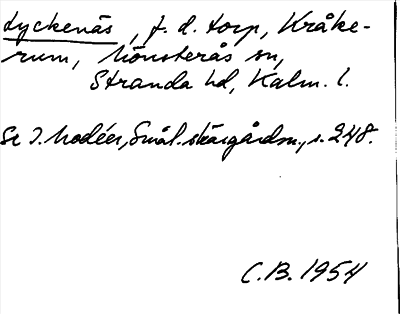 Lyckenäs, f. d. torp, Kråke-
rum, Mönsterås sn,
Stranda hd, Kalm. l.
Se I. Modéer, Smål. skärgårdsn., s. 248.
C.B. 1954